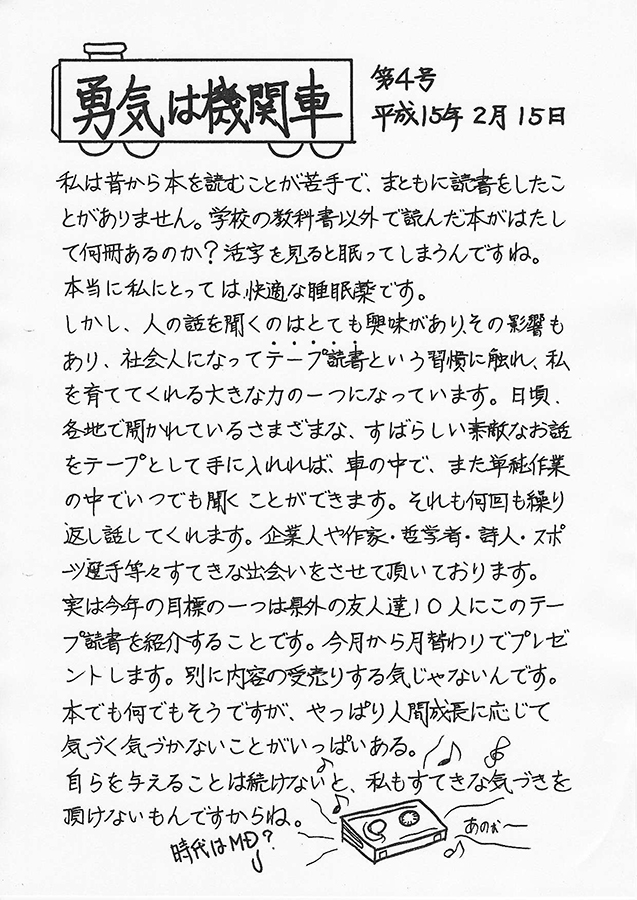 勇気は機関車
第4号
平成15年 2月 15日
私は昔から本を読むことが苦手で、まともに読書をしたこ
とがありません。学校の教科書以外で読んだ本がはたし
て何冊あるのか?活字を見ると眠ってしまうんですね。
本当に私にとっては快適な睡眠薬です。
しかし、人の話を聞くのはとても興味がありその影響も
あり、社会人になってテープ読書という習慣に触れ、私
を育ててくれる大きな力の一つになっています。日頃、
各地で開かれているさまざまな、すばらしい素敵なお話
をテープとして手に入れれば、車の中で、また単純作業
の中でいつでも聞くことができます。それも何回も繰り
返し話してくれます。企業人や作家・哲学者・詩人・スポ
ーツ選手等々すてきな出会いをさせて頂いております。
実は今年の目標の一つは県外の友人達10人にこのテー
プ読書を紹介することです。今月から月替わりでプレゼ
ントします。別に内容の受売りする気じゃないんです。
本でも何でもそうですが、やっぱり人間成長に応じて
気づく気づかないことがいっぱいある。
自らを与えることは続けないと、私もすてきな気づきを
頂けないもんですからね。
あのぉ〜
時代はMD?